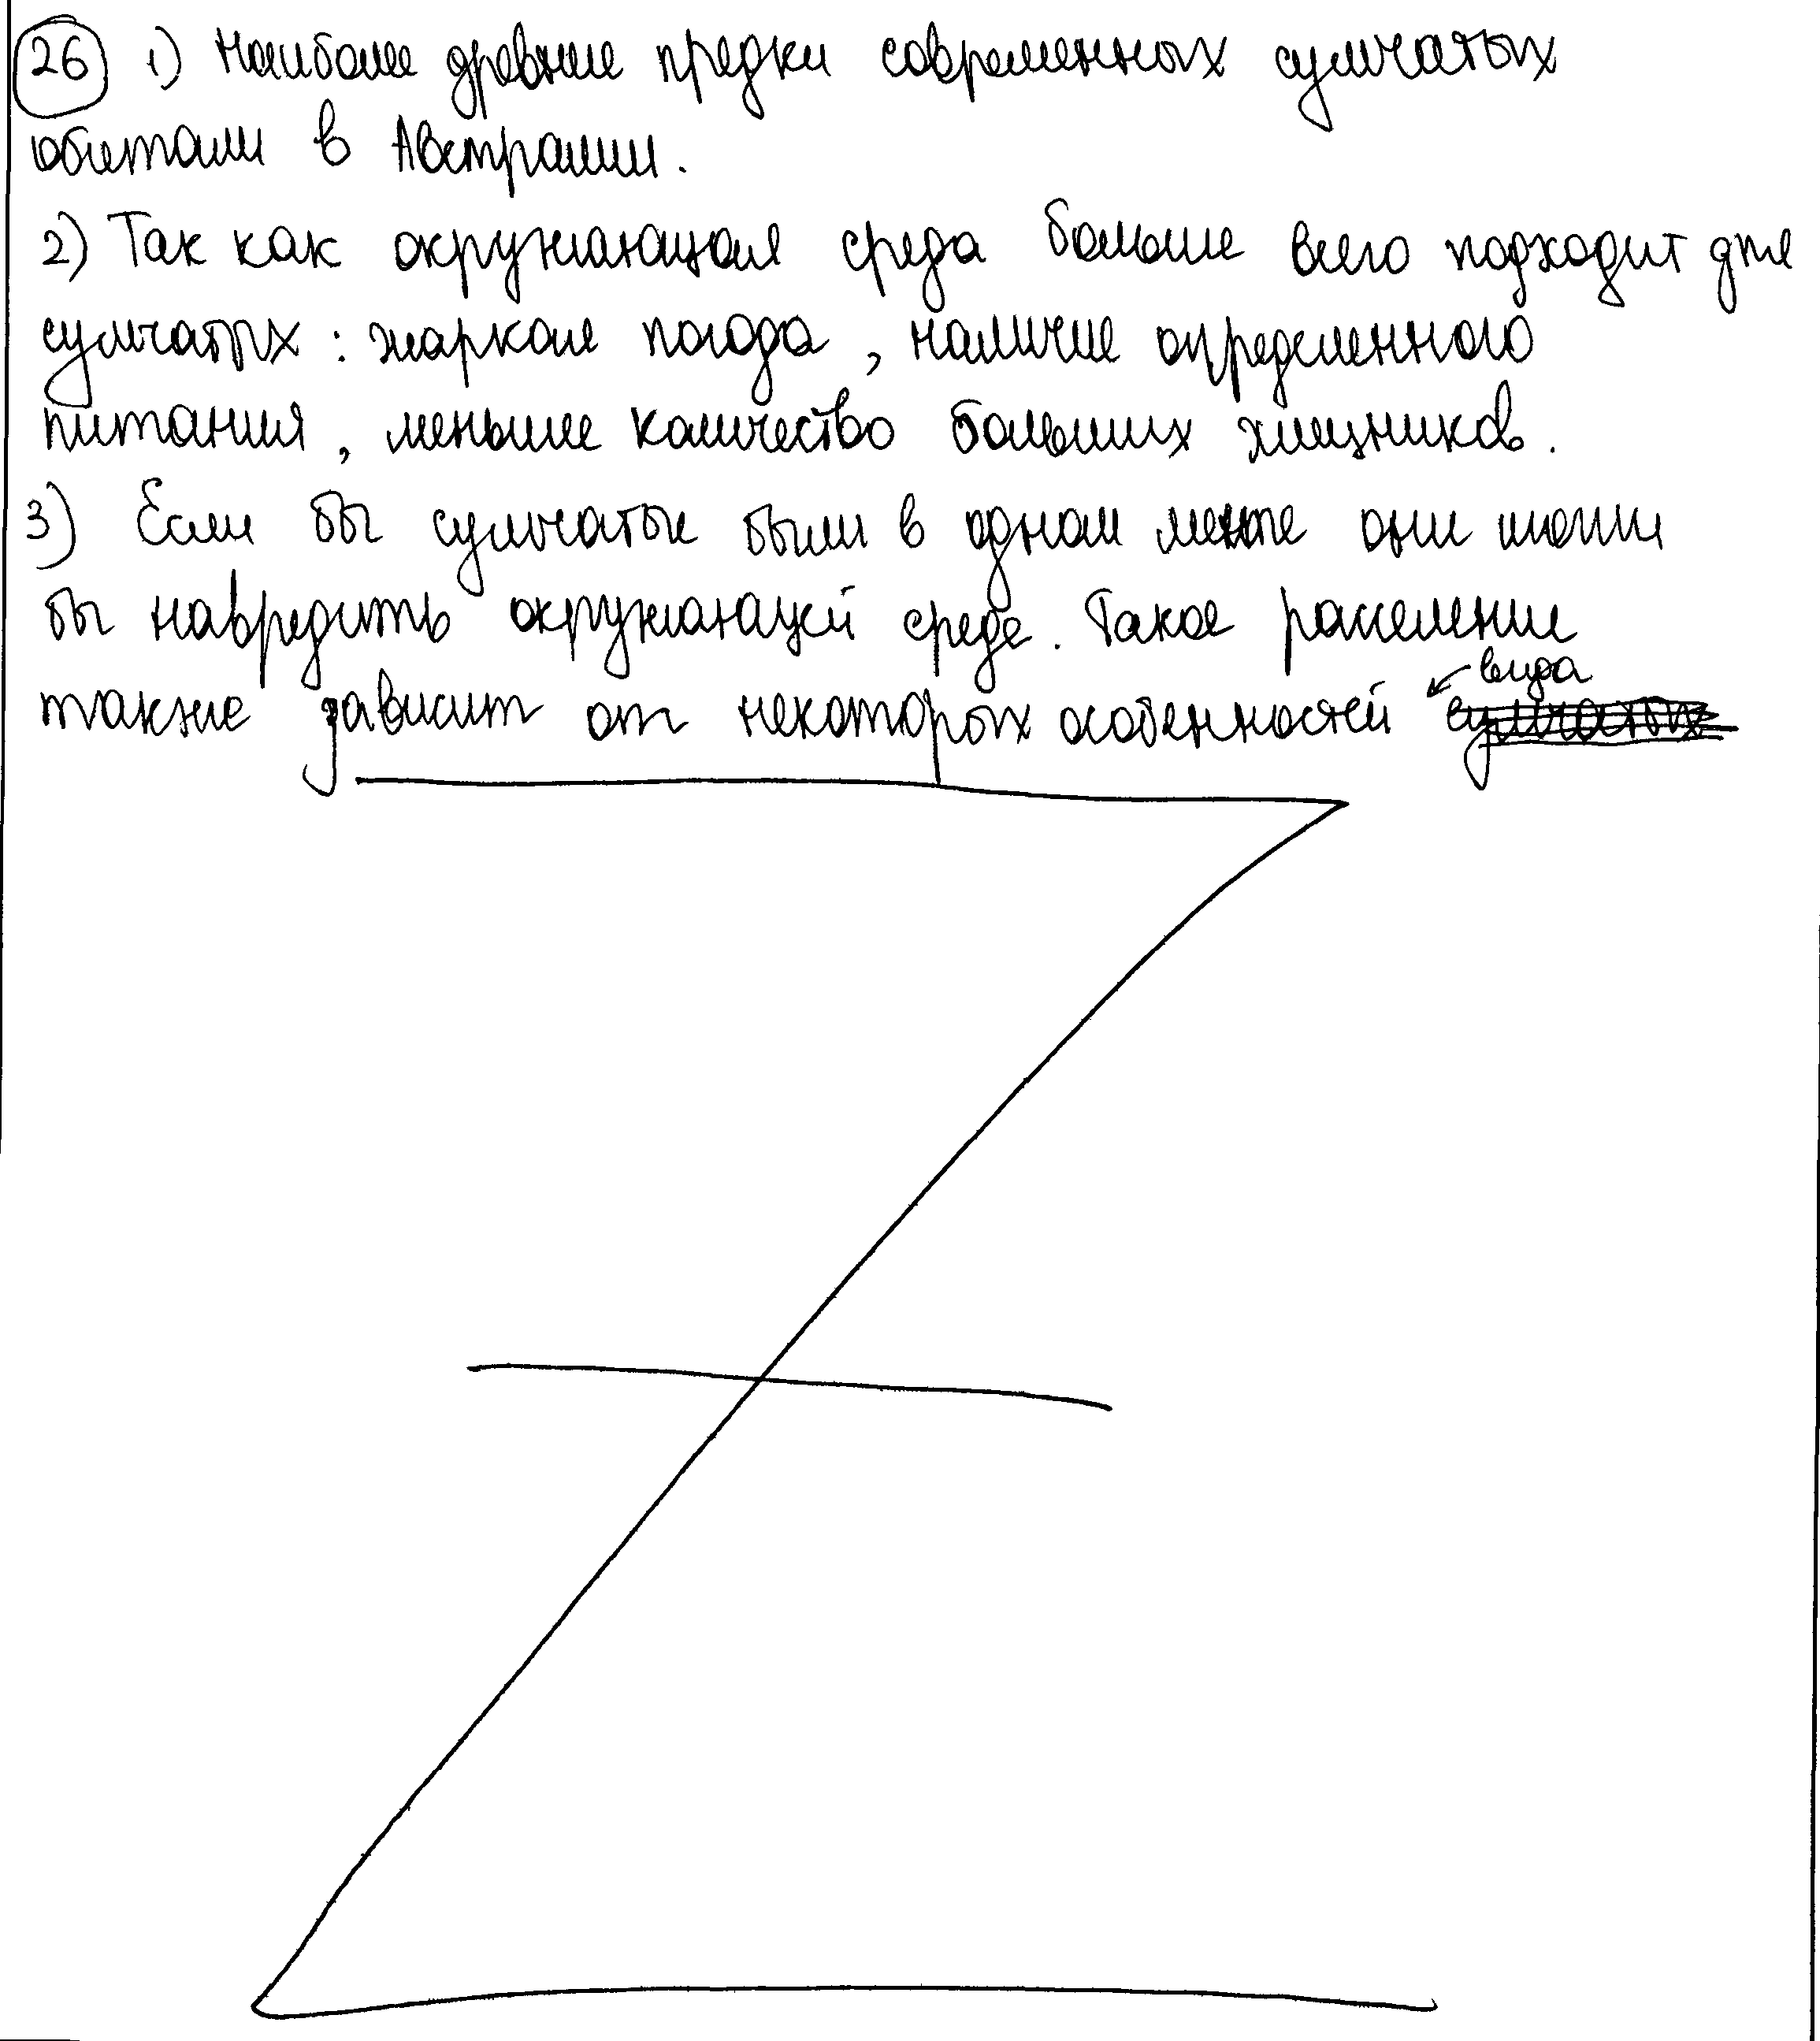 26 1) Наиболее древние предки современных сумчатых
обитали в Австралии.
2) Так как окружающая среда больше всего подходит для
сумчатых: жаркая погода, наличие определенного
питания, меньшее количество больших хищников.
3) Если бы сумчатые были в одном месте они могли
бы навредить окружающей среде. Такое расселение
также зависит от некоторых особенностей вида